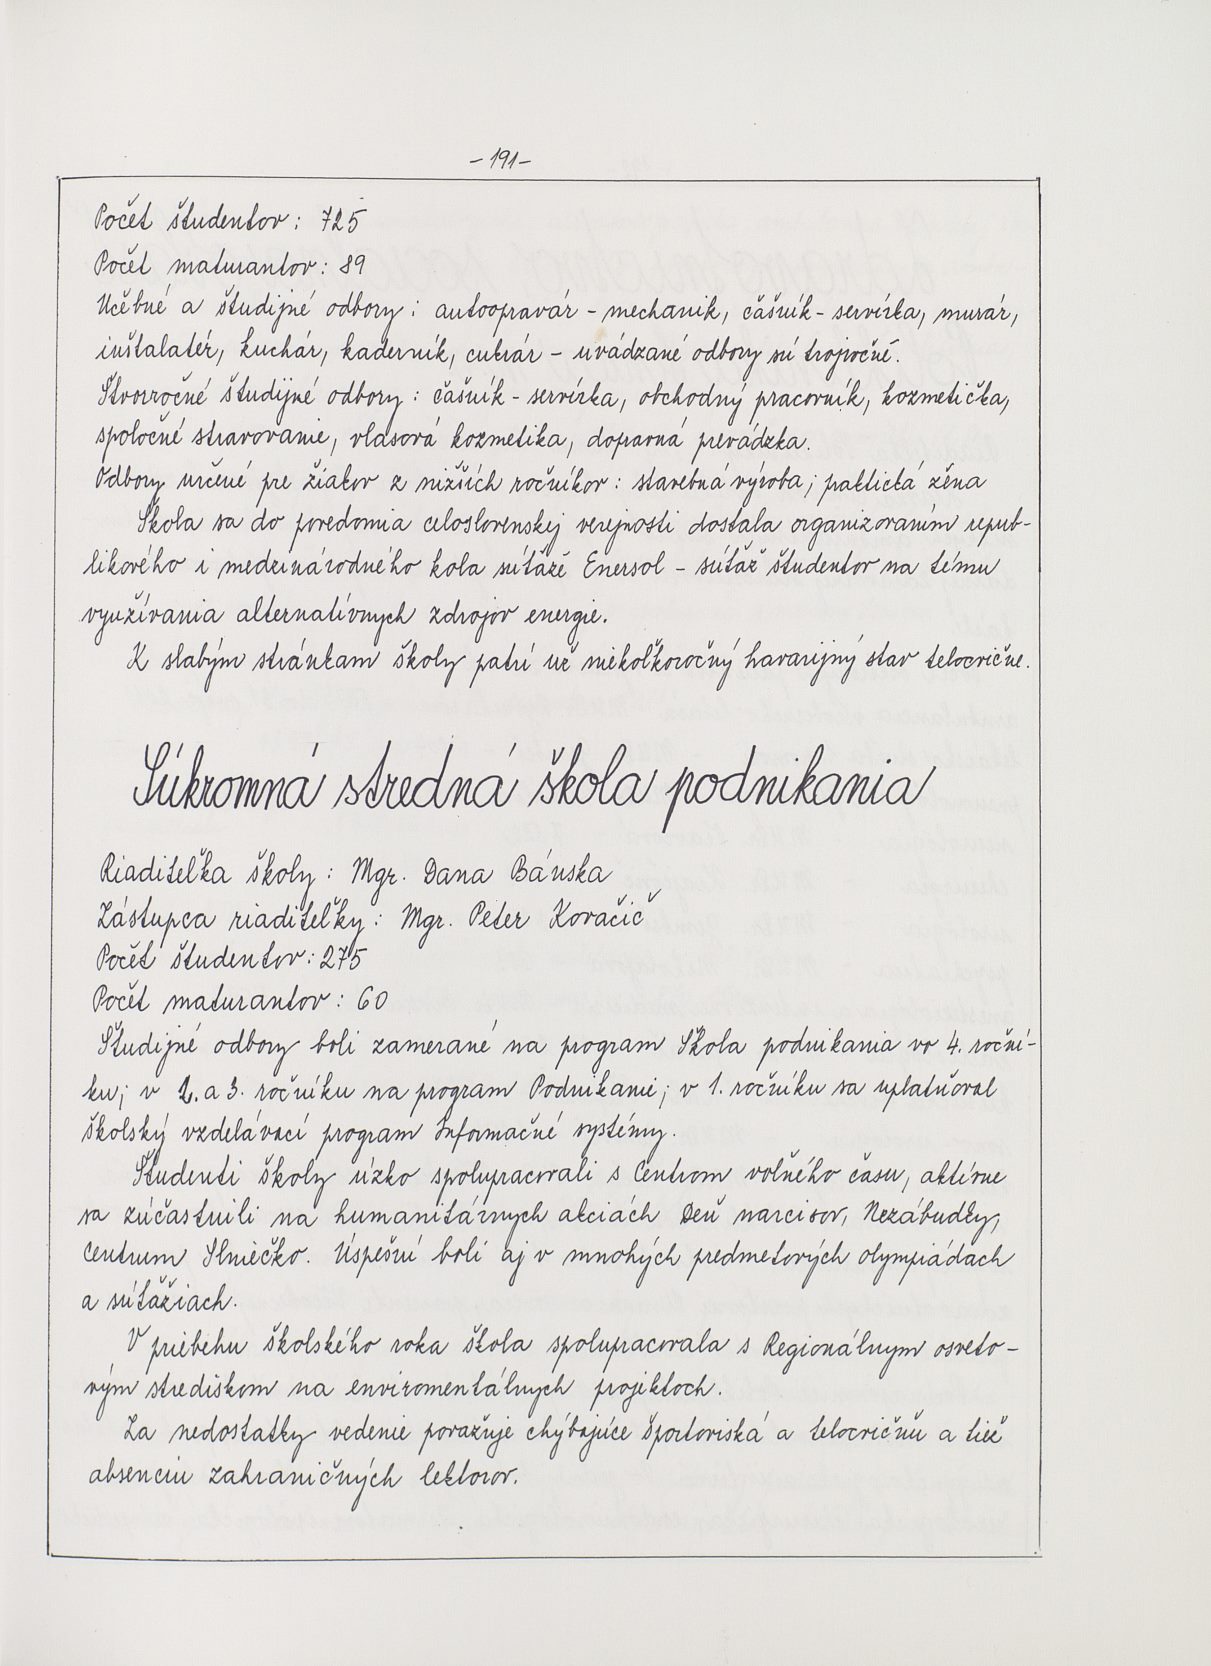 - 191 -
Počet študentov: 725
Počet maturantov: 89
Učebné a študijné odbory: autoopravár - mechanik, čašník - servírka, murár,
inštalatér, kuchár, kaderník, cukrár - uvádzané odbory sú trojročné.
Štvorročné študijné odbory: čašník - servírka, obchodný pracovník, kozmetička,
spoločné stravovanie, vlasová kozmetika, dopravná prevádzka.
Odbory určené pre žiakov z nižších ročníkov: stavebná výroba; paktická žena
Škola sa do povedomia celoslovenskej verejnosti dostala organizovaním repub-
likového i medzinárodného kola súťaže Enersol - súťaž študentov na tému
využívania alternatívnych zdrojov energie.
K slabým stránkam školy patrí už niekoľkoročný havarijný stav telocvične.
Súkromná stredná škola podnikania
Riaditeľka školy: Mgr. Dana Bánska
Zástupca riaditeľky: Mgr. Peter Kovačič
Počet študentov: 275
Počet maturantov: 60
Študijné odbory boli zamerané na program Škola podnikania vo 4. roční-
ku; v 2. a 3. ročníku na program Podnikanie; v 1. ročníku sa uplatňoval
školský vzdelávací program Informačné systémy.
Študenti školy úzko spolupracovali s Centrom voľného času, aktívne
sa zúčastnili na humanitárnych akciách Deň narcisov, Nezábudky,
Centrum Slniečko. Úspešní boli aj v mnohých predmetových olympiádach
a súťažiach.
V priebehu školského roka škola spolupracovala s Regionálnym osveto-
vým strediskom na enviromentálnych projektoch.
Za nedostatky vedenie považuje chýbajúce športoviská a telocvičňu a tiež
absenciu zahraničných lektorov.